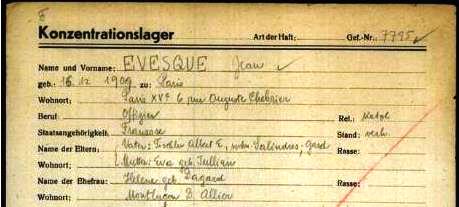 Konzentrationslager Art der Haft: Gef.-Nr.: 7795
Name und Vorname: EVESQUE Jean
geb.: 16.12.1909 zu: Paris
Wohnort: Paris XVe 6, rue Auguste Chabrier
Beruf: Offizier Rel.: kathol.
Staatsangehörigkeit: Franzose Stand: verh.
Name der Eltern: Vater: Albert E., Salindres, Gard Rasse:
Wohnort: Mutter: Eva geb. Jullian
Name der Ehefrau: Helene geb. Dagard Rasse:
Wohnort: Montluçon D. Allier